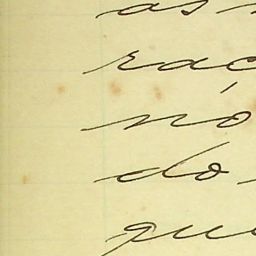 as
raç
nó
do
que